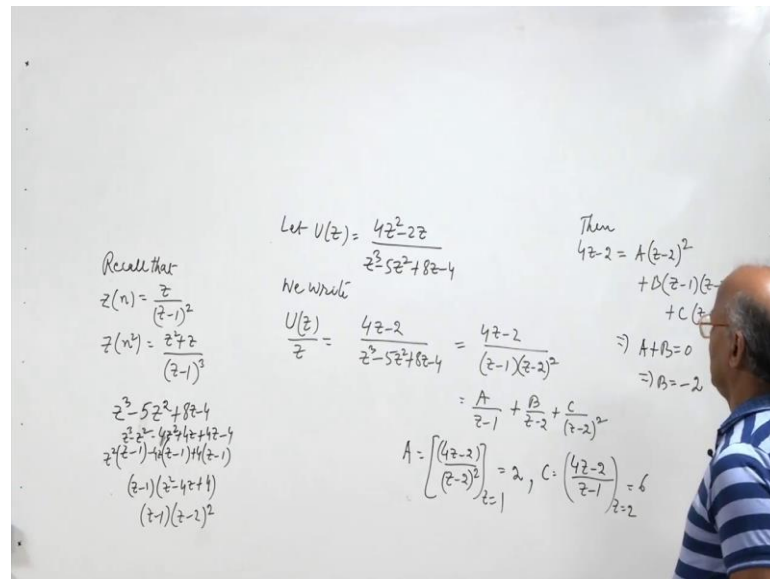 Recall that
z(n) = z/(z-1)^2
z(n^2) = (z^2+z)/(z-1)^3
z^3-5z^2+8z-4
z^3-z^2-4z^2+4z+4z-4
z^2(z-1)-4z(z-1)+4(z-1)
(z-1)(z^2-4z+4)
(z-1)(z-2)^2
Let U(z) = (4z^2-2z)/(z^3-5z^2+8z-4)
We write
U(z)/z = (4z-2)/(z^3-5z^2+8z-4) = (4z-2)/((z-1)(z-2)^2)
= A/(z-1) + B/(z-2) + C/(z-2)^2
A = [(4z-2)/(z-2)^2]_{z=1} = 2, C = ((4z-2)/(z-1))_{z=2} = 6
Then
4z-2 = A(z-2)^2
+B(z-1)(z-
+C(z
⇒ A+B=0
⇒ B=-2